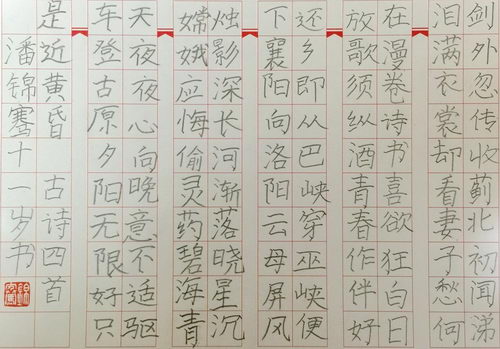 剑外忽传收蓟北初闻涕
泪满衣裳却看妻子愁何
在漫卷诗书喜欲狂白日
放歌须纵酒青春作伴好
还乡即从巴峡穿巫峡便
下襄阳向洛阳云母屏风
烛影深长河渐落晓星沉
嫦娥应悔偷灵药碧海青
天夜夜心向晚意不适驱
车登古原夕阳无限好只
是近黄昏 古诗四首
潘锦骞十一岁书